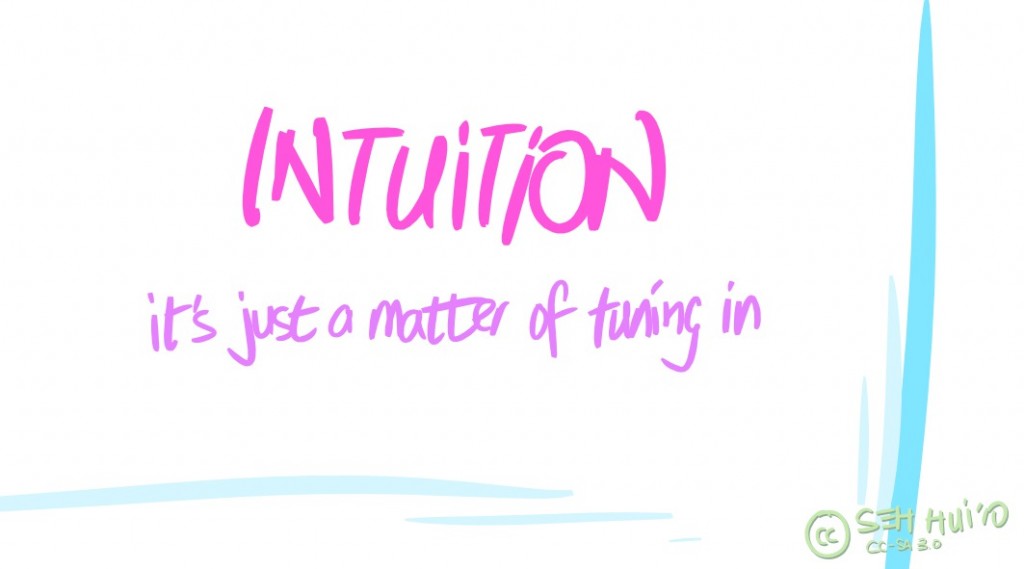 INTUITION
it's just a matter of tuning in
cc SEH HUI'D
CC-SA 3.0